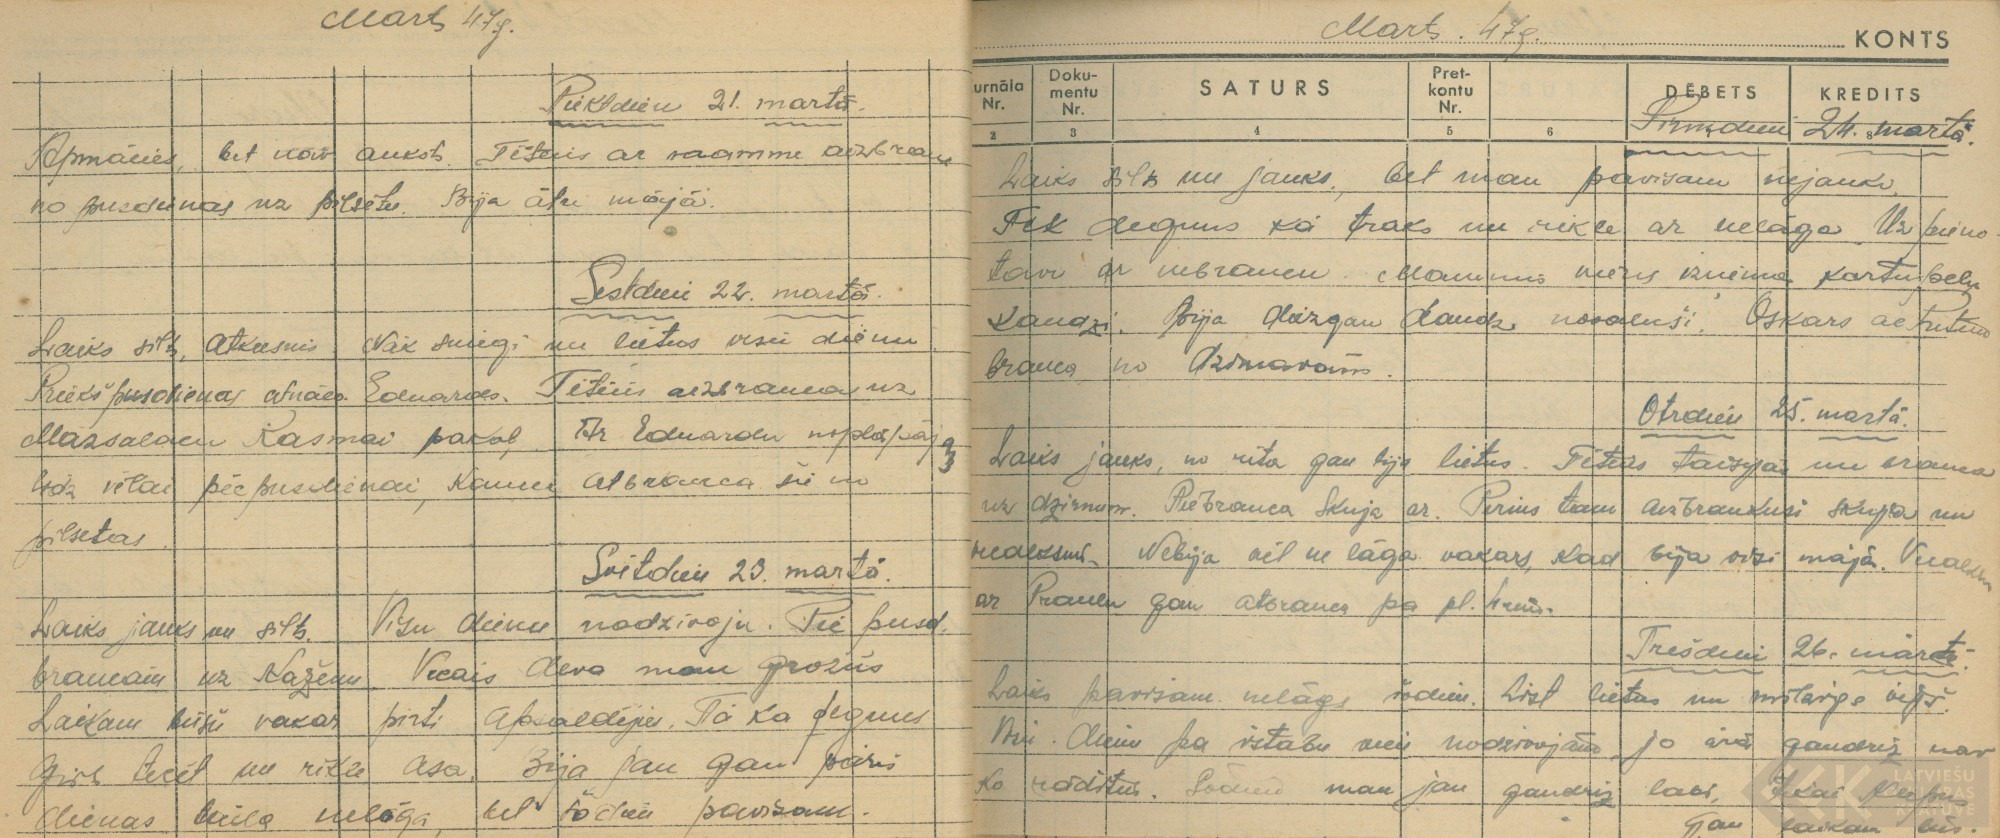 Marts 47g.
Piektdien 21. martā.
Apmācies, bet nav auksts. Tētiņš ar mammu aizbrauc
no pusdienas uz pilsētu. Bija ātri mājā.
Sestdien 22. martā.
Laiks silts, atkusnis. Nāk sniegs un lietus visu dienu.
Priekšpusdienas atnāca Eduards. Tētiņš aizbrauca uz
Mazsalacu Kasmai pakaļ. Ar Eduardu noplāpāj
līdz vēlai pēcpusdienai, kamēr atbrauca šie no
pilsētas.
Svētdien 23. martā.
Laiks jauks un silts. Visu dienu nodzīvoju. Pie pusd.
braucām uz Kažēnu. Vecais deva man grožus
Laikam būšu vakar pirtī apsaldējies. Tā ka deguns
grib tecēt un rīkle asa. Bija jau gan pāris
dienas tāila nelāga, bet šodien pavisam.
Marts. 47g.
KONTS
urnāla Nr.
Doku-mentu Nr.
SATURS
Pret-kontu Nr.
DEBETS
KREDITS
2 3 4 5 6 8
Pirmdien 24. martā.
Laiks silts un jauks, bet man pavisam nejauki.
Tek deguns kā traks un rīkle ar nelāga. Uz pieno-
tavu ar nebraucu. Mammus vīrs izņēma kartupeļu
kaudzi. Bija diezgan daudz nosaluši. Oskars ar
brauca no dzirnavām.
Otrdien 25. martā.
Laiks jauks, no rīta gan bija lietus. Tētiņš taisījās un brauca
uz dzirnum. Piebrauca Skuja ar. Pirms tam aizbraukusi Skuja un
Nebija vēl ne lāga vakars, kad bija visi mājā.
ar Prauli gan atbrauca pa pl.
Trešdien 26. martā.
Laiks pavisam nelāgs šodien. Līst lietus un mitrīgs vējš.
Visu dienu pa istabu vien nodzīvojām, jo ārā gandrīz nav
ko rādītus. Šodien man jau gandrīz labi,
gan laikam būs.
LATVIEŠU